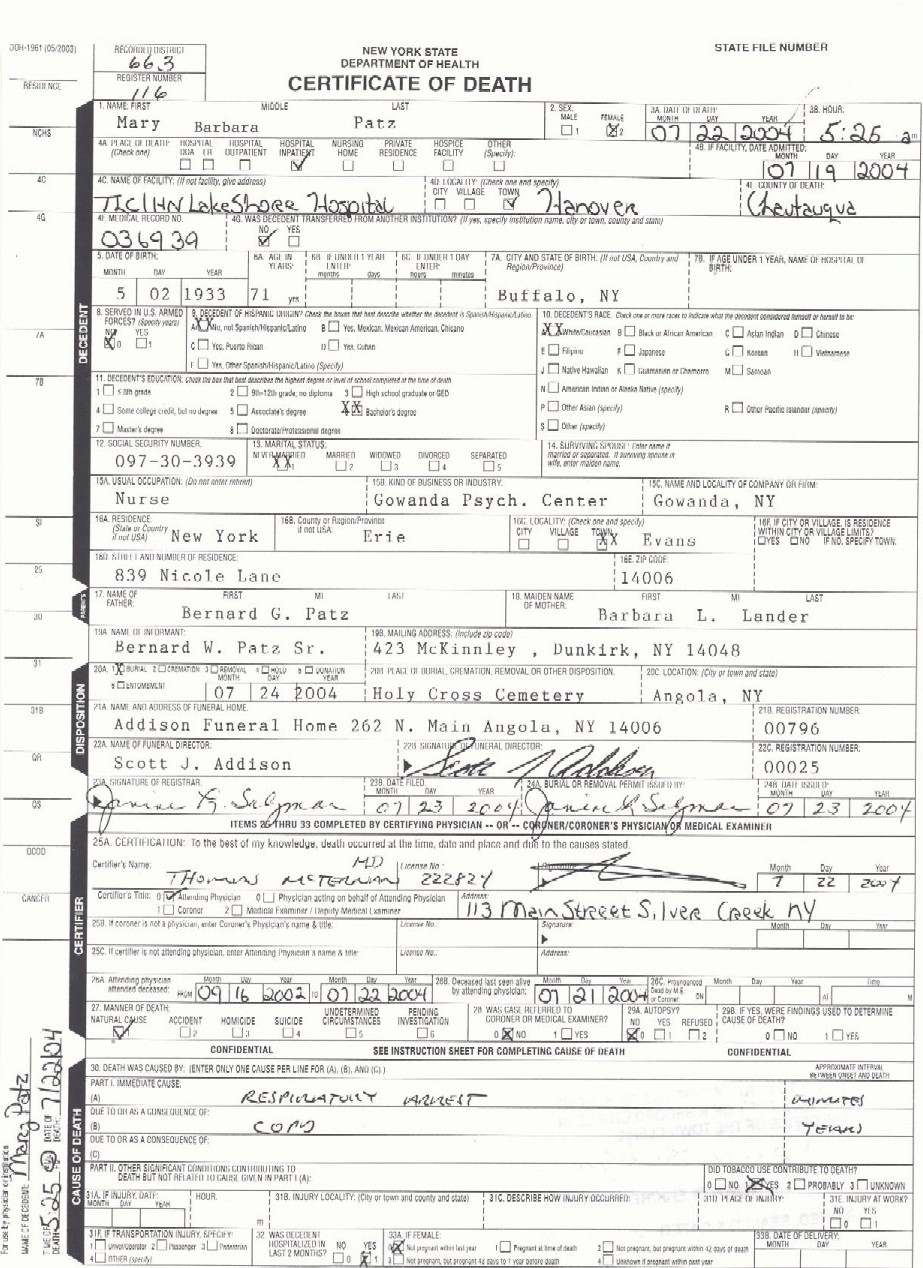 DOH-1961 (05/2003)
RECORDED DISTRICT
663
REGISTER NUMBER
116
NEW YORK STATE
DEPARTMENT OF HEALTH
CERTIFICATE OF DEATH
STATE FILE NUMBER
RESIDENCE
NCHS
4C
4G
7A
7B
SI
25
30
31
31B
QR
QS
QCOD
CANCER
DECEDENT
1. NAME: FIRST MIDDLE LAST
Mary Barbara Patz
2. SEX: MALE 1 FEMALE X 2
3A. DATE OF DEATH: MONTH DAY YEAR
07 22 2004
3B. HOUR:
5:25 am
4A. PLACE OF DEATH: (Check one) HOSPITAL DOA HOSPITAL ER HOSPITAL OUTPATIENT HOSPITAL INPATIENT NURSING HOME PRIVATE RESIDENCE HOSPICE FACILITY OTHER (Specify):
4B. IF FACILITY, DATE ADMITTED: MONTH DAY YEAR
07 19 2004
4C. NAME OF FACILITY: (If not facility, give address)
TLC/IHN LakeShore Hospital
4D. LOCALITY: (Check one and specify) CITY VILLAGE TOWN
Hanover
4E. COUNTY OF DEATH:
Chautauqua
4F. MEDICAL RECORD NO.
036939
4G. WAS DECEDENT TRANSFERRED FROM ANOTHER INSTITUTION? (If yes, specify institution name, city or town, county and state)
NO YES
5. DATE OF BIRTH: MONTH DAY YEAR
5 02 1933
6A. AGE IN YEARS:
71 yrs
6B. IF UNDER 1 YEAR ENTER: months days
6C. IF UNDER 1 DAY ENTER: hours minutes
7A. CITY AND STATE OF BIRTH: (If not USA, Country and Region/Province)
Buffalo, NY
7B. IF AGE UNDER 1 YEAR, NAME OF HOSPITAL OF BIRTH:
8. SERVED IN U.S. ARMED FORCES? (Specify years)
NO X 0 YES 1
9. DECEDENT OF HISPANIC ORIGIN? Check the boxes that best describe whether the decedent is Spanish/Hispanic/Latino.
A XX No, not Spanish/Hispanic/Latino B Yes, Mexican, Mexican American, Chicano
C Yes, Puerto Rican D Yes, Cuban
E Yes, Other Spanish/Hispanic/Latino (Specify)
10. DECEDENT'S RACE: Check one or more races to indicate what the decedent considered himself or herself to be:
A XX White/Caucasian B Black or African American C Asian Indian D Chinese
E Filipino F Japanese G Korean H Vietnamese
J Native Hawaiian K Guamanian or Chamorro M Samoan
N American Indian or Alaska Native (specify)
P Other Asian (specify) R Other Pacific Islander (specify)
S Other (specify)
11. DECEDENT'S EDUCATION: Check the box that best describes the highest degree or level of school completed at the time of death
1 ≤ 8th grade 2 9th-12th grade; no diploma 3 High school graduate or GED
4 Some college credit, but no degree 5 Associate's degree XX Bachelor's degree
7 Master's degree 8 Doctorate/Professional degree
12. SOCIAL SECURITY NUMBER:
097-30-3939
13. MARITAL STATUS:
NEVER MARRIED XX 1 MARRIED 2 WIDOWED 3 DIVORCED 4 SEPARATED 5
14. SURVIVING SPOUSE: Enter name if married or separated. If surviving spouse is wife, enter maiden name.
15A. USUAL OCCUPATION: (Do not enter retired)
Nurse
15B. KIND OF BUSINESS OR INDUSTRY:
Gowanda Psych. Center
15C. NAME AND LOCALITY OF COMPANY OR FIRM:
Gowanda, NY
16A. RESIDENCE: (State or Country if not USA)
New York
16B. County or Region/Province if not USA:
Erie
16C. LOCALITY: (Check one and specify) CITY VILLAGE TOWN XX
Evans
16F. IF CITY OR VILLAGE, IS RESIDENCE WITHIN CITY OR VILLAGE LIMITS?
YES NO IF NO, SPECIFY TOWN:
16D. STREET AND NUMBER OF RESIDENCE:
839 Nicole Lane
16E. ZIP CODE:
14006
PARENTS
17. NAME OF FATHER: FIRST MI LAST
Bernard G. Patz
18. MAIDEN NAME OF MOTHER: FIRST MI LAST
Barbara L. Lander
19A. NAME OF INFORMANT:
Bernard W. Patz Sr.
19B. MAILING ADDRESS: (Include zip code)
423 McKinnley , Dunkirk, NY 14048
DISPOSITION
20A. 1 X BURIAL 2 CREMATION 3 REMOVAL 4 HOLD 5 DONATION
6 ENTOMBMENT MONTH DAY YEAR
07 24 2004
20B. PLACE OF BURIAL, CREMATION, REMOVAL OR OTHER DISPOSITION:
Holy Cross Cemetery
20C. LOCATION: (City or town and state)
Angola, NY
21A. NAME AND ADDRESS OF FUNERAL HOME:
Addison Funeral Home 262 N. Main Angola, NY 14006
21B. REGISTRATION NUMBER:
00796
22A. NAME OF FUNERAL DIRECTOR:
Scott J. Addison
22B. SIGNATURE OF FUNERAL DIRECTOR:
Scott J Addison
22C. REGISTRATION NUMBER:
00025
23A. SIGNATURE OF REGISTRAR:
23B. DATE FILED: MONTH DAY YEAR
07 23 2004
24A. BURIAL OR REMOVAL PERMIT ISSUED BY:
24B. DATE ISSUED: MONTH DAY YEAR
07 23 2004
ITEMS 25 THRU 33 COMPLETED BY CERTIFYING PHYSICIAN -- OR -- CORONER/CORONER'S PHYSICIAN OR MEDICAL EXAMINER
CERTIFIER
25A. CERTIFICATION: To the best of my knowledge, death occurred at the time, date and place and due to the causes stated.
Certifier's Name: License No.: Signature: Month Day Year
THOMAS MCTERNAN MD 222824 7 22 2004
Certifier's Title: 0 Attending Physician 0 Physician acting on behalf of Attending Physician
1 Coroner 2 Medical Examiner / Deputy Medical Examiner
Address:
113 Main Street Silver Creek NY
25B. If coroner is not a physician, enter Coroner's Physician's name & title: License No.: Signature: Month Day Year
25C. If certifier is not attending physician, enter Attending Physician's name & title: License No.: Address:
26A. Attending physician attended deceased: Month Day Year Month Day Year
FROM 09 16 2002 TO 07 22 2004
26B. Deceased last seen alive by attending physician: Month Day Year
07 21 2004
26C. Pronounced Dead by M.E. or Coroner: ON Month Day Year AT Time M
27. MANNER OF DEATH:
NATURAL CAUSE ACCIDENT 2 HOMICIDE 3 SUICIDE 4 UNDETERMINED CIRCUMSTANCES 5 PENDING INVESTIGATION 6
28. WAS CASE REFERRED TO CORONER OR MEDICAL EXAMINER?
0 X NO 1 YES
29A. AUTOPSY? NO YES REFUSED
X 0 1 2
29B. IF YES, WERE FINDINGS USED TO DETERMINE CAUSE OF DEATH?
0 NO 1 YES
CONFIDENTIAL SEE INSTRUCTION SHEET FOR COMPLETING CAUSE OF DEATH CONFIDENTIAL
CAUSE OF DEATH
30. DEATH WAS CAUSED BY: (ENTER ONLY ONE CAUSE PER LINE FOR (A), (B), AND (C).)
APPROXIMATE INTERVAL BETWEEN ONSET AND DEATH
PART I. IMMEDIATE CAUSE:
(A) RESPIRATORY ARREST MINUTES
DUE TO OR AS A CONSEQUENCE OF:
(B) COPD YEARS
DUE TO OR AS A CONSEQUENCE OF:
(C)
PART II. OTHER SIGNIFICANT CONDITIONS CONTRIBUTING TO DEATH BUT NOT RELATED TO CAUSE GIVEN IN PART I (A):
DID TOBACCO USE CONTRIBUTE TO DEATH?
0 NO X YES 2 PROBABLY 3 UNKNOWN
31A. IF INJURY, DATE: MONTH DAY YEAR HOUR m
31B. INJURY LOCALITY: (City or town and county and state)
31C. DESCRIBE HOW INJURY OCCURRED:
31D. PLACE OF INJURY:
31E. INJURY AT WORK?
NO 0 YES 1
31F. IF TRANSPORTATION INJURY, SPECIFY:
1 Driver/Operator 2 Passenger 3 Pedestrian
4 OTHER (specify)
32. WAS DECEDENT HOSPITALIZED IN LAST 2 MONTHS?
NO 0 YES X 1
33A. IF FEMALE:
0 X Not pregnant within last year 1 Pregnant at time of death 2 Not pregnant, but pregnant within 42 days of death
3 Not pregnant, but pregnant 43 days to 1 year before death 4 Unknown if pregnant within past year
33B. DATE OF DELIVERY: MONTH DAY YEAR
For use by physician or institution
NAME OF DECEDENT: Mary Patz
TIME OF DEATH: 5:25 DATE OF DEATH: 7/22/04